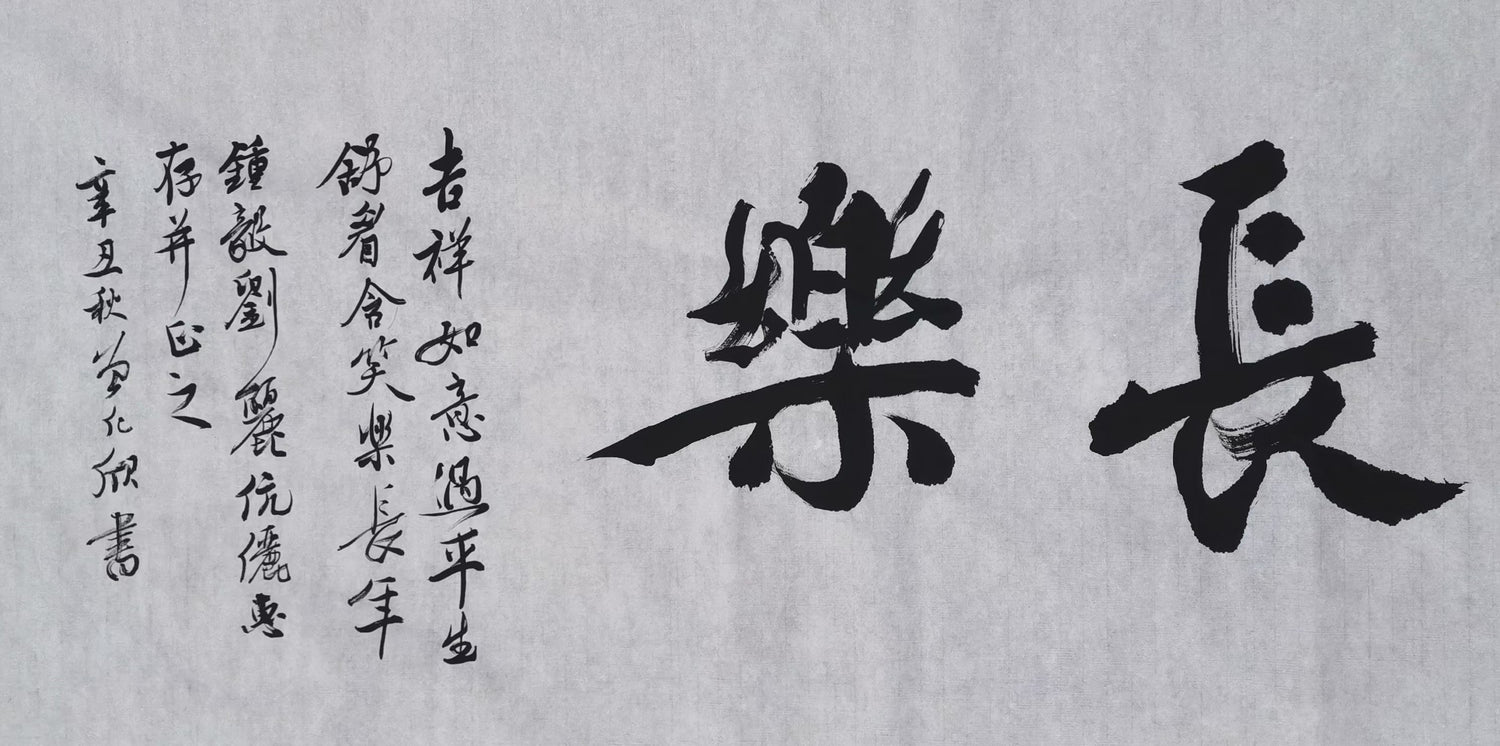 長樂
吉祥如意過平生
舒眉含笑樂長年
鐘毅劉麗伉儷惠
存并正之
辛丑秋曾化書